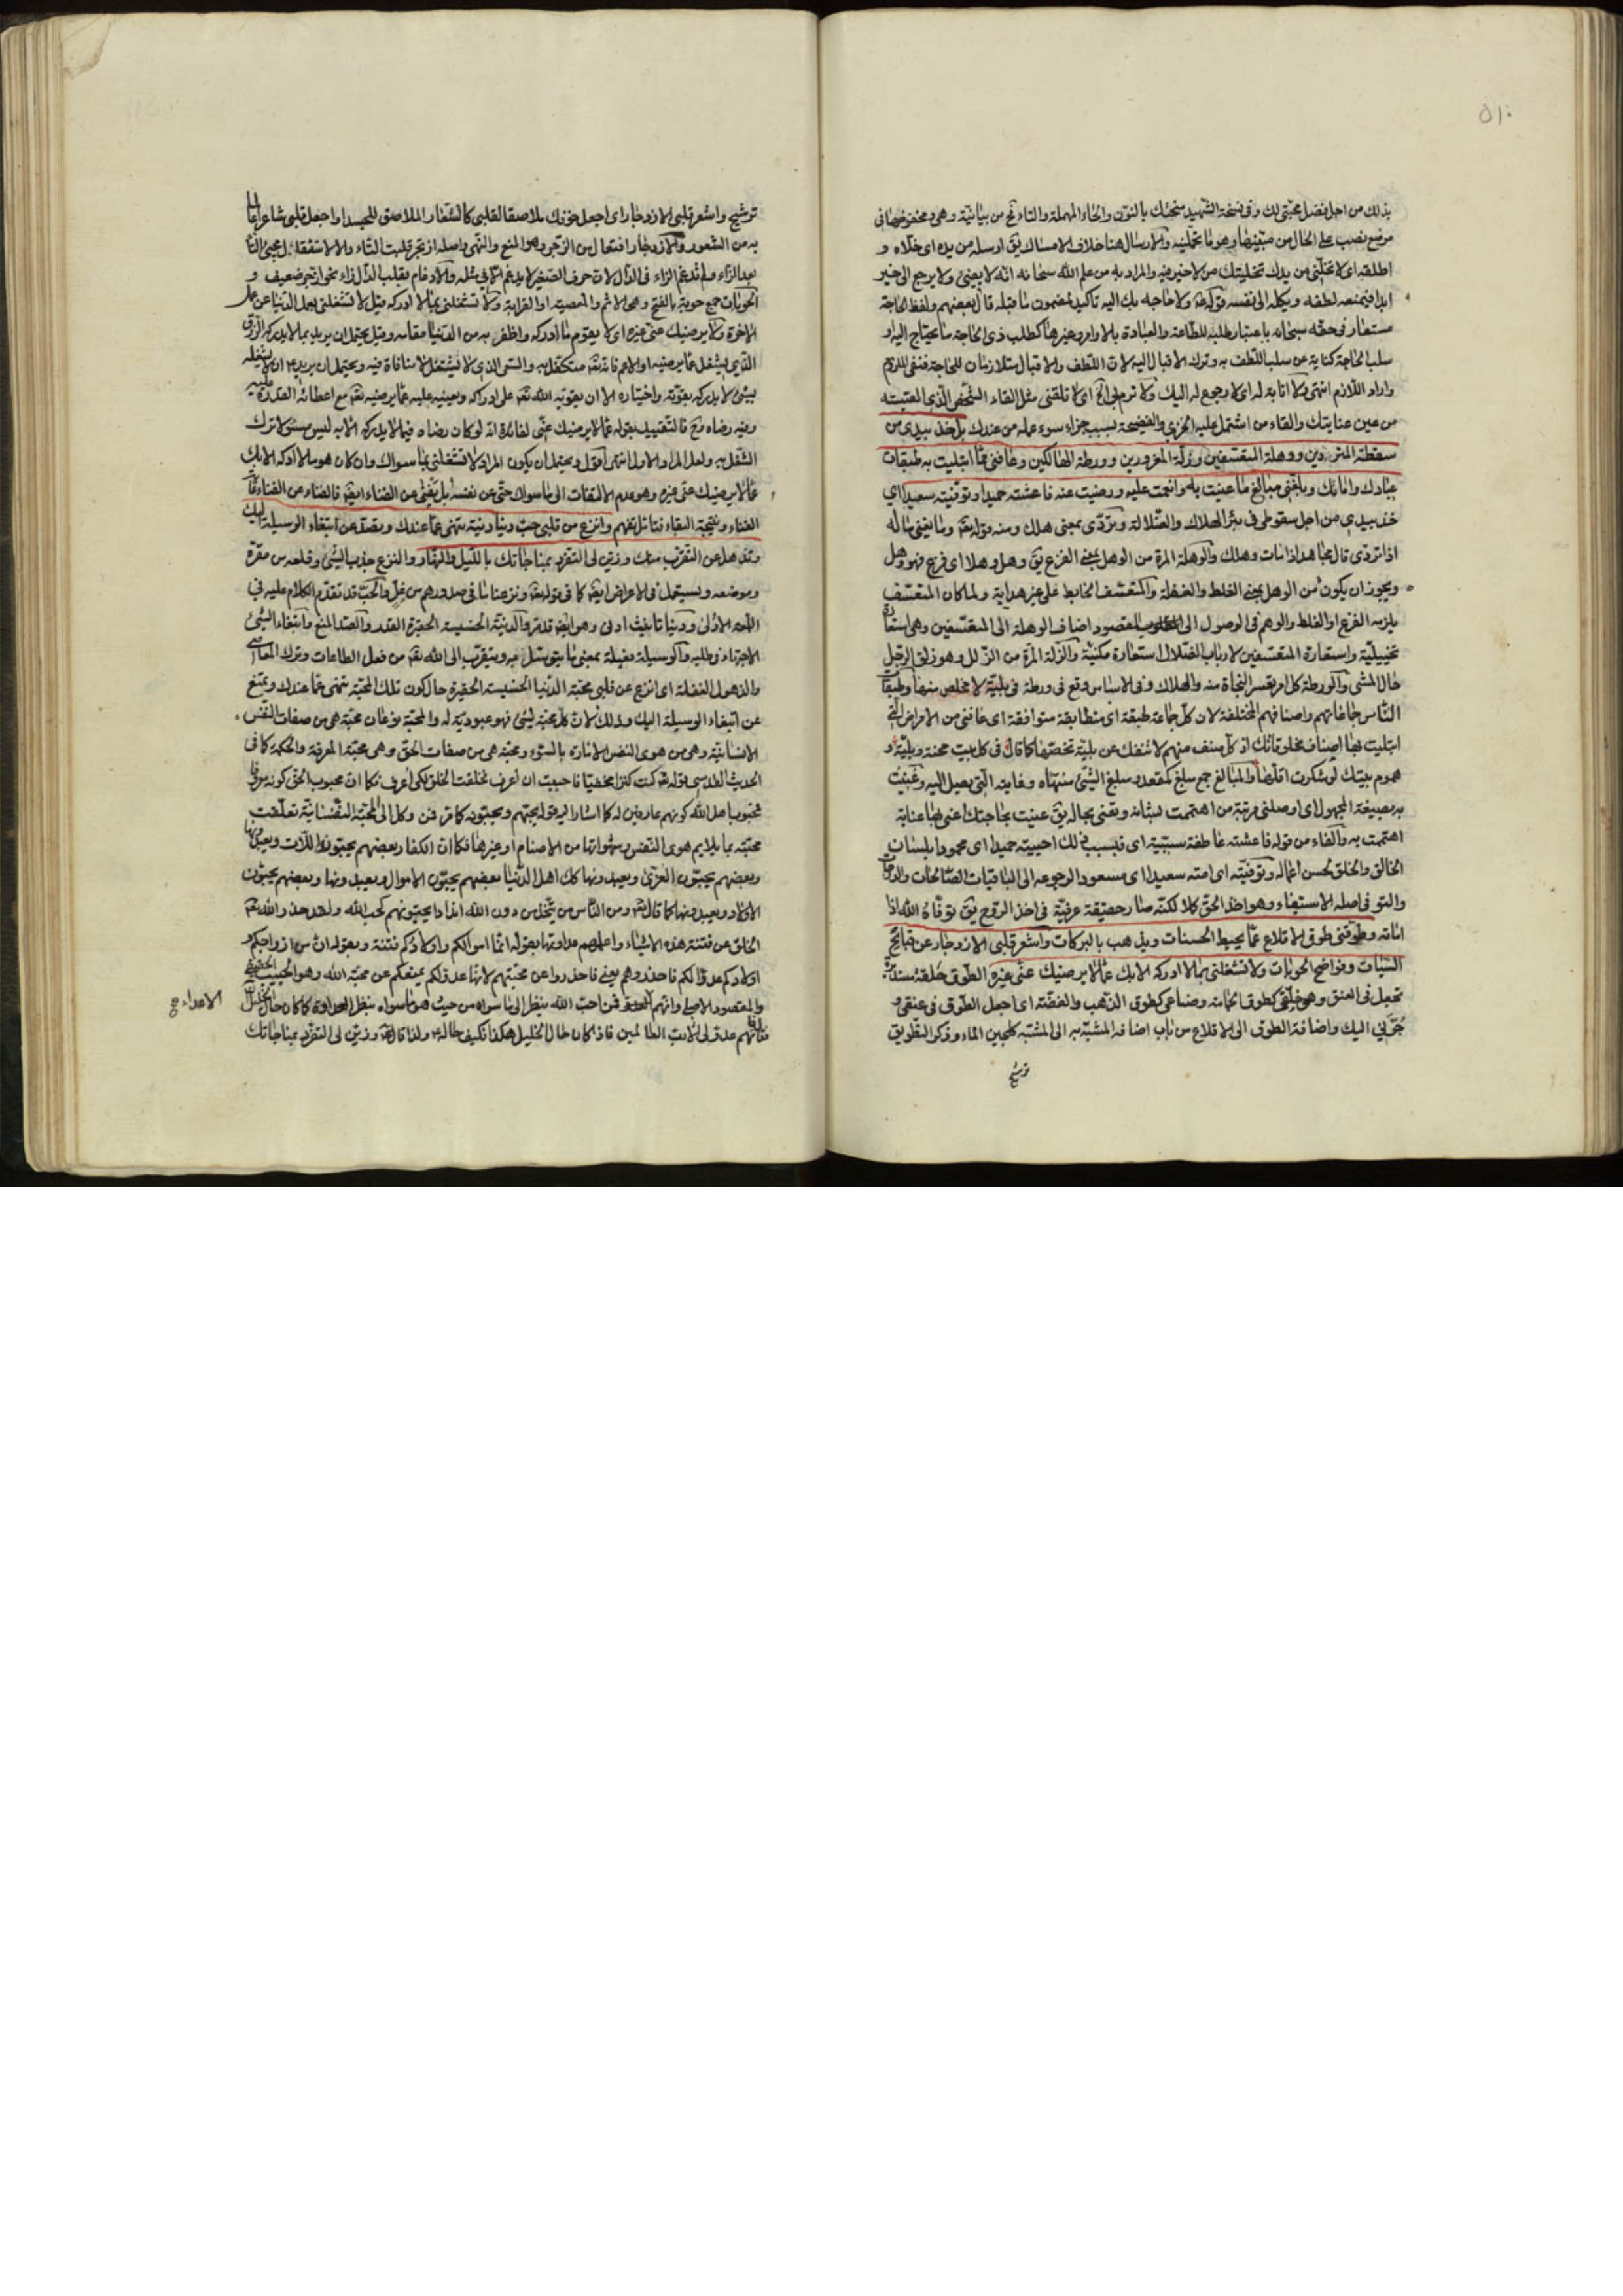 ٥١٠
بذلك من اجل فضل محبتى لك وفى نسخة الشهيد بالنون والحاء المهملة والتاء من بيانية وهى
موضع نصب على الحال من والارسال هنا خلاف الامساك يق ارسله من يده اى خلاه و
اطلقه اى لا تخلنى من يدك تخلية من لا خير فيه والمراد به من علم الله سبحانه انه لا يعنى ولا يرجع الى خير
ابدا فيمنعه لطفه ويكله الى نفسه قوله ولا حاجه بك اليه تاكيد لمضمون ما قبله قال بعضهم ولفظ الحاجة
مستعار فى حقه سبحانه باعتبار طلبه للطاعة والعبادة بالاوامر وغيرها كطلب ذى الحاجة ما يحتاج اليه او
سلب الحاجة كناية عن سلب اللطف به وترك الاقبال اليه لان اللطف والاقبال متلازمان للحاجة فنفى الملزوم
واراد اللازم انتهى ولا انابة له اى لا رجوع له اليك ولا ترم بى الخ اى لا تلقنى مثل القاء الشخص الذى
من عين عنايتك والقاء من اشتمل عليه الخزى والفضيحة بسبب جزاء سوء عمله من عندك بل خذ بيدى من
سقطة المتردين ووهلة المتعسفين وزلة المغرورين وورطة الهالكين وعافنى مما ابتليت به طبقات
عبادك وامائك وبلغنى مبالغ من عنيت به وانعمت عليه ورضيت عنه فاعشته حميدا وتوفيته سعيدا اى
خذ بيدى من اجل سقوطى فى بئر الهلاك والضلالة وتردى بمعنى هلك ومنه قوله تعالى وما يغنى ماله
اذا تردى قال مجاهد اذا مات وهلك والوهلة المرة من الوهل بمعنى الفزع يق وهل وهلا اى فزع فهو وهل
ويجوز ان يكون من الوهل بمعنى الغلط والغفلة والمتعسف الخابط على غير هداية ولما كان المتعسف
يلزمه الفزع او الغلط والوهم فى الوصول الى المقصود اضاف الوهلة الى المتعسفين وهى استعارة
تخييلية واستعارة المتعسفين لارباب الضلال استعارة مكنية والزلة المرة من الزلل وهو زلق الرجل
حال المشى والورطة كل امر يعسر النجاة منه والهلاك وفى الاساس وقع فى ورطة فى بلية لا مخلص منها وطبقات
الناس جماعاتهم واصنافهم المختلفة لان كل جماعة طبقة اى متطابقة متوافقة اى عافنى من الامراض التى
ابتليت بها اصناف مخلوقاتك اذ كل صنف منهم لا تنفك عن بلية تخصها كما قال فى كل بيت محنة وبلية و
هموم بيتك لو شكرت اقلها والمبالغ جمع مبلغ كمقعد ومبلغ الشئ منتهاه وغايته التى يصل اليه وعنيت
به بصيغة المجهول اى اوصلنى مرتبة من اهتممت بشانه وتعنى بحاله يق عنيت بحاجتك اعنى بها عناية
اهتممت به والفاء من قوله فاعشته عاطفة سببية اى فبسبب ذلك احييته حميدا اى محمودا بلسان
الخالق والخلق لحسن اعماله وتوفيته اى امته سعيدا اى مسعودا لرجوعه الى الباقيات الصالحات
والتوفى اصله الاستيفاء وهو اخذ الحق كلا لكنه صار حقيقة عرفية فى اخذ الروح يق توفاه الله اذا
اماته وطوقنى طوق الاقلاع عما يحبط الحسنات ويذهب بالبركات واشعر قلبى الازدجار عن قبائح
السيئات وفواضح الحوبات ولا تشغلنى بما لا ادركه الا بك عما لا يرضيك عنى غيره الطوق حلقة مستديرة
تجعل فى العنق وهو خلقى كطوق الحمامة وصناعى كطوق الذهب والفضة اى اجعل الطوق فى عنقى و
جرنى اليك واضافة الطوق الى الاقلاع من باب اضافة المشبه به الى المشبه كلجين الماء وذكر التطويق
ترشيح
ترشيح واشعر قلبى الازدجار اى اجعل خوفك ملاصقا لقلبى كالشعار الملاصق للجسد او اجعل قلبى شاعرا
به من الشعور والازدجار افتعال من الزجر وهو المنع والنهى واصله ازتجر قلبت التاء دالا لاستثقال مجئ التاء
بعد الزاء ولم تدغم الزاء فى الدال لان حرف الصفير لا يدغم الا فى مثله والادغام بقلب الدال زاء نحو ازجر ضعيف و
الحوبات جمع حوبة بالفتح وهى الاثم والمعصية او القرابة ولا تشغلنى بما لا ادركه قيل لا تشغلنى بعمل الدنيا عن عمل
الاخرة ولا يرضيك عنى غيره اى لا يقوم ما ادركه واظفر به من الدنيا مقامه وقيل يحتمل ان يريد بما لا يدركه الرزق
الذى يشتغل عما يرضيه او الاعم فانه تعالى متكفل به والشئ الذى لا يشتغل لا منافاة فيه ويحتمل ان يريد ان لا يشغله
بشئ لا يدركه بقوته واختياره الا ان يقويه الله تعالى على ادراكه ويعينه عليه عما يرضيه تعالى مع اعطائه القدرة عليه
وفيه رضاه فالتقييد بقوله عما لا يرضيك عنى لفائدة انه لو كان رضاه فيما لا يدركه الا به ليس مسئولا ترك
الشغل به ولعل المراد الاول انتهى اقول ويحتمل ان يكون المراد لا تشغلنى بما سواك وان كان هو مما لا ادركه الا بك
عما لا يرضيك عنى غيره وهو عدم الالتفات الى ما سواك حتى عن نفسه بل يفنى عن الفناء ايضا فالفناء عن الفناء
الفناء ونتيجة البقاء فتامل تفهم وانزع من قلبى حب دنيا دنية تنهى عما عندك وتصد عن ابتغاء الوسيلة اليك
وتذهل عن التقرب منك وزين لى التفرد بمناجاتك بالليل والنهار والنزع جذب الشئ وقلعه من مقره
وموضعه ويستعمل فى الاعراض ايضا كما فى قوله تعالى ونزعنا ما فى صدورهم من غل والحب قد تقدم الكلام عليه فى
اللمعة الاولى ودنيا تانيث ادنى وهو ايضا قد مر والدنية الخسيسة الحقيرة القدر والصد المنع وابتغاء الشئ
الاجتهاد فى طلبه والوسيلة فعيلة بمعنى ما يتوسل به ويتقرب الى الله تعالى من فعل الطاعات وترك المعاصى
والذهول الغفلة اى انزع عن قلبى محبة الدنيا الخسيسة الحقيرة حال كون تلك المحبة تنهى عما عندك وتمنع
عن ابتغاء الوسيلة اليك وذلك لان كل محبة لشئ فهو عبودية له والمحبة نوعان محبة هى من صفات النفس
الانسانية وهى من هوى النفس الامارة بالسوء ومحبة هى من صفات الحق وهى محبة المعرفة والحكمة كما فى
الحديث القدسى قوله تعالى كنت كنزا مخفيا فاحببت ان اعرف فخلقت الخلق لكى اعرف فكما ان محبوب الحق كونه معروفا
فمحبوب اهل الله كونهم عارفين له كما اشار اليه قوله يحبهم ويحبونه كامن فنى وكل الى المحبة النفسانية تعلقت
محبته بما يلايم هوى النفس وشهواتها من الاصنام او غيرها فكما ان الكفار بعضهم يحبون اللات ويعبدونها
وبعضهم يحبون العزى ويعبدونها كك اهل الدنيا بعضهم يحبون الاموال ويعبدونها وبعضهم يحبون
الاولاد ويعبدونها كما قال تعالى ومن الناس من يتخذ من دون الله اندادا يحبونهم كحب الله ولقد حذر الله تعالى
الخلق عن فتنة هذه الاشياء واعلمهم عداوتها بقوله انما اموالكم واولادكم فتنة وبقوله ان من ازواجكم و
اولادكم عدوا لكم فاحذروهم يعنى فاحذروا عن محبتهم لانها عدو لكم يمنعكم عن محبة الله وهو الحبيب الحقيقى
والمقصود الاصلى وانهم فمن احب الله ينظر الى ما سواه من حيث هو ما سواه بنظر العداوة كما كان حال الخليل
فانهم عدو لى الا رب العالمين فاذا كان حال الخليل هكذا فكيف حالنا ولذا قال وزين لى التفرد بمناجاتك
الاعداء صح